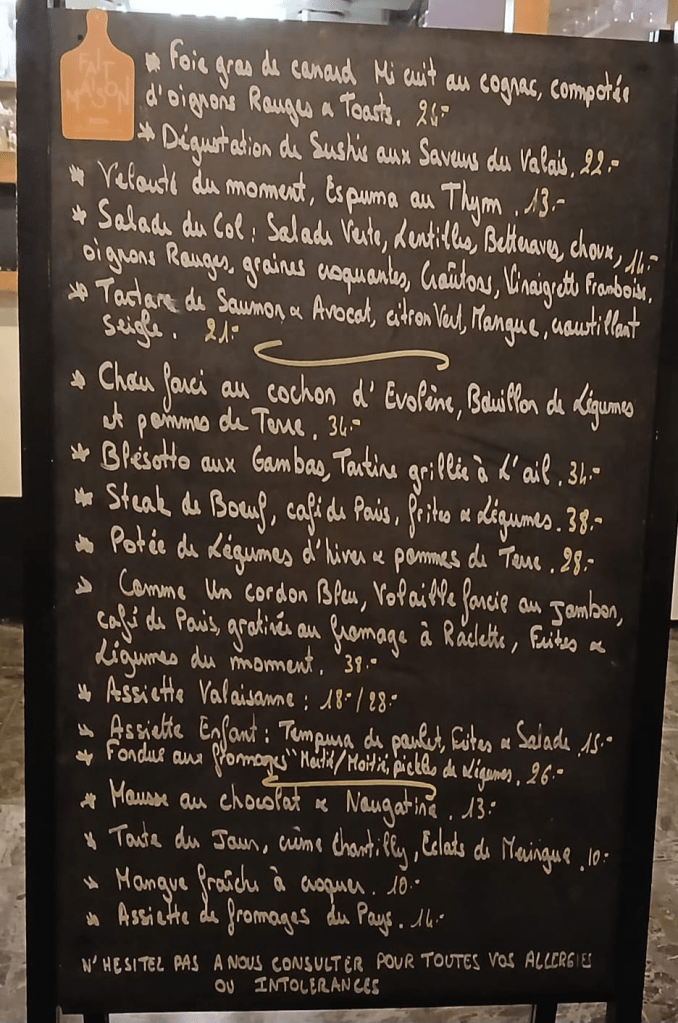 FAIT
MAISON
* Foie gras de canard Mi cuit au cognac, compotée
d'oignons Rouges & Toasts. 26.-
* Dégustation de Sushis aux Saveurs du Valais. 22.-
* Velouté du moment, Espuma au Thym. 13.-
* Salade du Col : Salade Verte, Lentilles, Betteraves, choux, 14.-
oignons Rouges, graines croquantes, Croûtons, Vinaigrette Framboise.
* Tartare de Saumon & Avocat, citron Vert, Mangue, croustillant
Seigle. 21.-
* Chou farci au cochon d'Evolène, Bouillon de Légumes
et pommes de Terre. 34.-
* Blésotto aux Gambas, Tartine grillée à L'ail. 34.-
* Steak de Boeuf, café de Paris, frites & Légumes. 38.-
* Potée de Légumes d'hiver & pommes de Terre. 28.-
* Comme Un cordon Bleu, Volaille farcie au Jambon,
café de Paris, gratinée au fromage à Raclette, Frites &
Légumes du moment. 38.-
* Assiette Valaisanne : 18.-/28.-
* Assiette Enfant : Tempura de poulet, Frites & Salade. 15.-
* Fondue aux fromages "Moitié/Moitié, pickles de Légumes. 26.-
* Mousse au chocolat & Nougatine. 13.-
* Tarte du Jour, crème Chantilly, Eclats de Meringue. 10.-
* Mangue fraîche à croquer. 10.-
* Assiette de fromages du Pays. 14.-
N'HESITEZ PAS A NOUS CONSULTER POUR TOUTES VOS ALLERGIES
OU INTOLERANCES